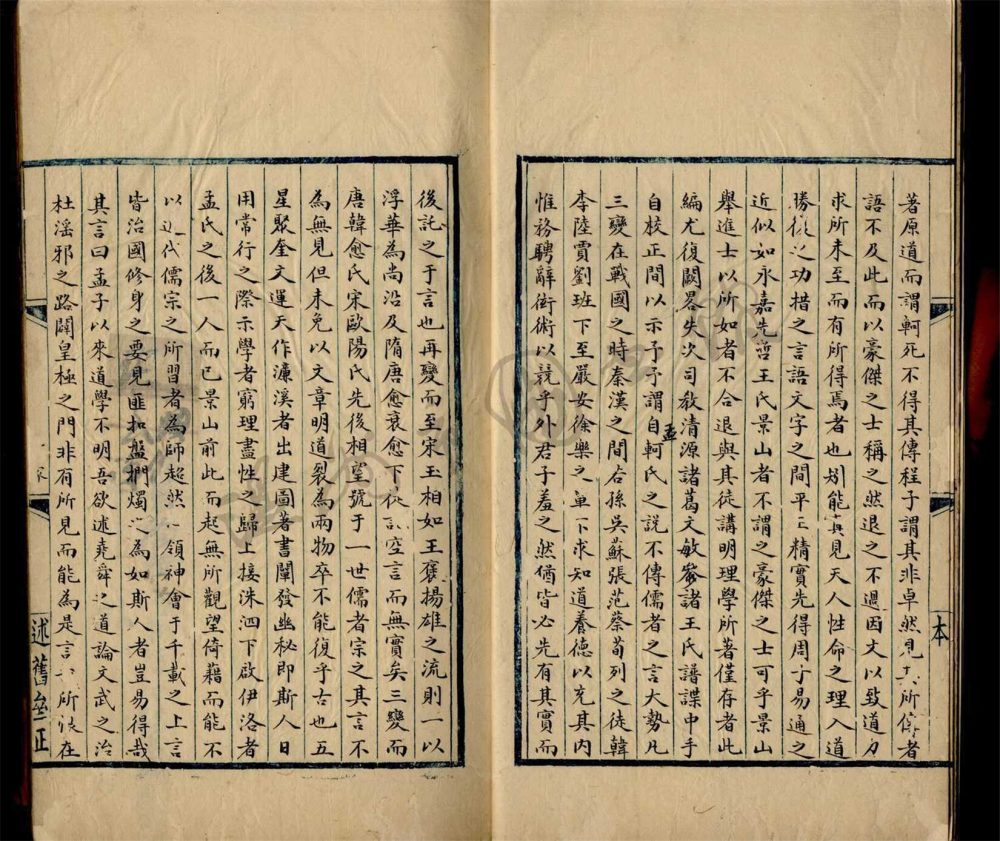 著原道而謂軻死不得其傳程子謂其非卓然見其所傳者
語不及此而以豪傑之士稱之然退之不過因文以致道力
求所未至而有所得焉者也矧能真見天人性命之理入道
勝復之功措之言語文字之間平正精實先得周子易通之
近似如永嘉先哲王氏景山者不謂之豪傑之士可乎景山
舉進士以所如者不合退與其徒講明理學所著僅存者此
編尤復闕畧失次司敎清源諸葛文敏叅諸王氏譜諜中手
自校正間以示予予謂自孟軻氏之說不傳儒者之言大勢凡
三變在戰國之時秦漢之間若孫吳蘇張范蔡荀列之徒韓
李陸賈劉班下至嚴安徐樂之單下求知道養德以充其内
惟務聘辭衒術以競乎外君子羞之然猶皆必先有其實而
本
後託之于言也再變而至宋玉相如王褒揚雄之流則一以
浮華為尚沿及隋唐愈衰愈下從以空言而無實矣三變而
唐韓愈氏宋歐陽氏先後相望號于一世儒者宗之其言不
為無見但未免以文章明道裂為兩物卒不能復乎古也五
星聚奎文運天作濂溪者出建圖著書闡發幽秘即斯人日
用常行之際示學者窮理盡性之歸上接洙泗下啟伊洛者
孟氏之後一人而已景山前此而起無所觀望倚藉而能不
以近代儒宗之所習者為師超然領神會于千載之上言
皆治國修身之要見匪扣盤捫燭之為如斯人者豈易得哉
其言曰孟子以來道學不明吾欲述堯舜之道論文武之治
杜滛邪之路闢皇極之門非有所見而能為是言所在
述舊叅正